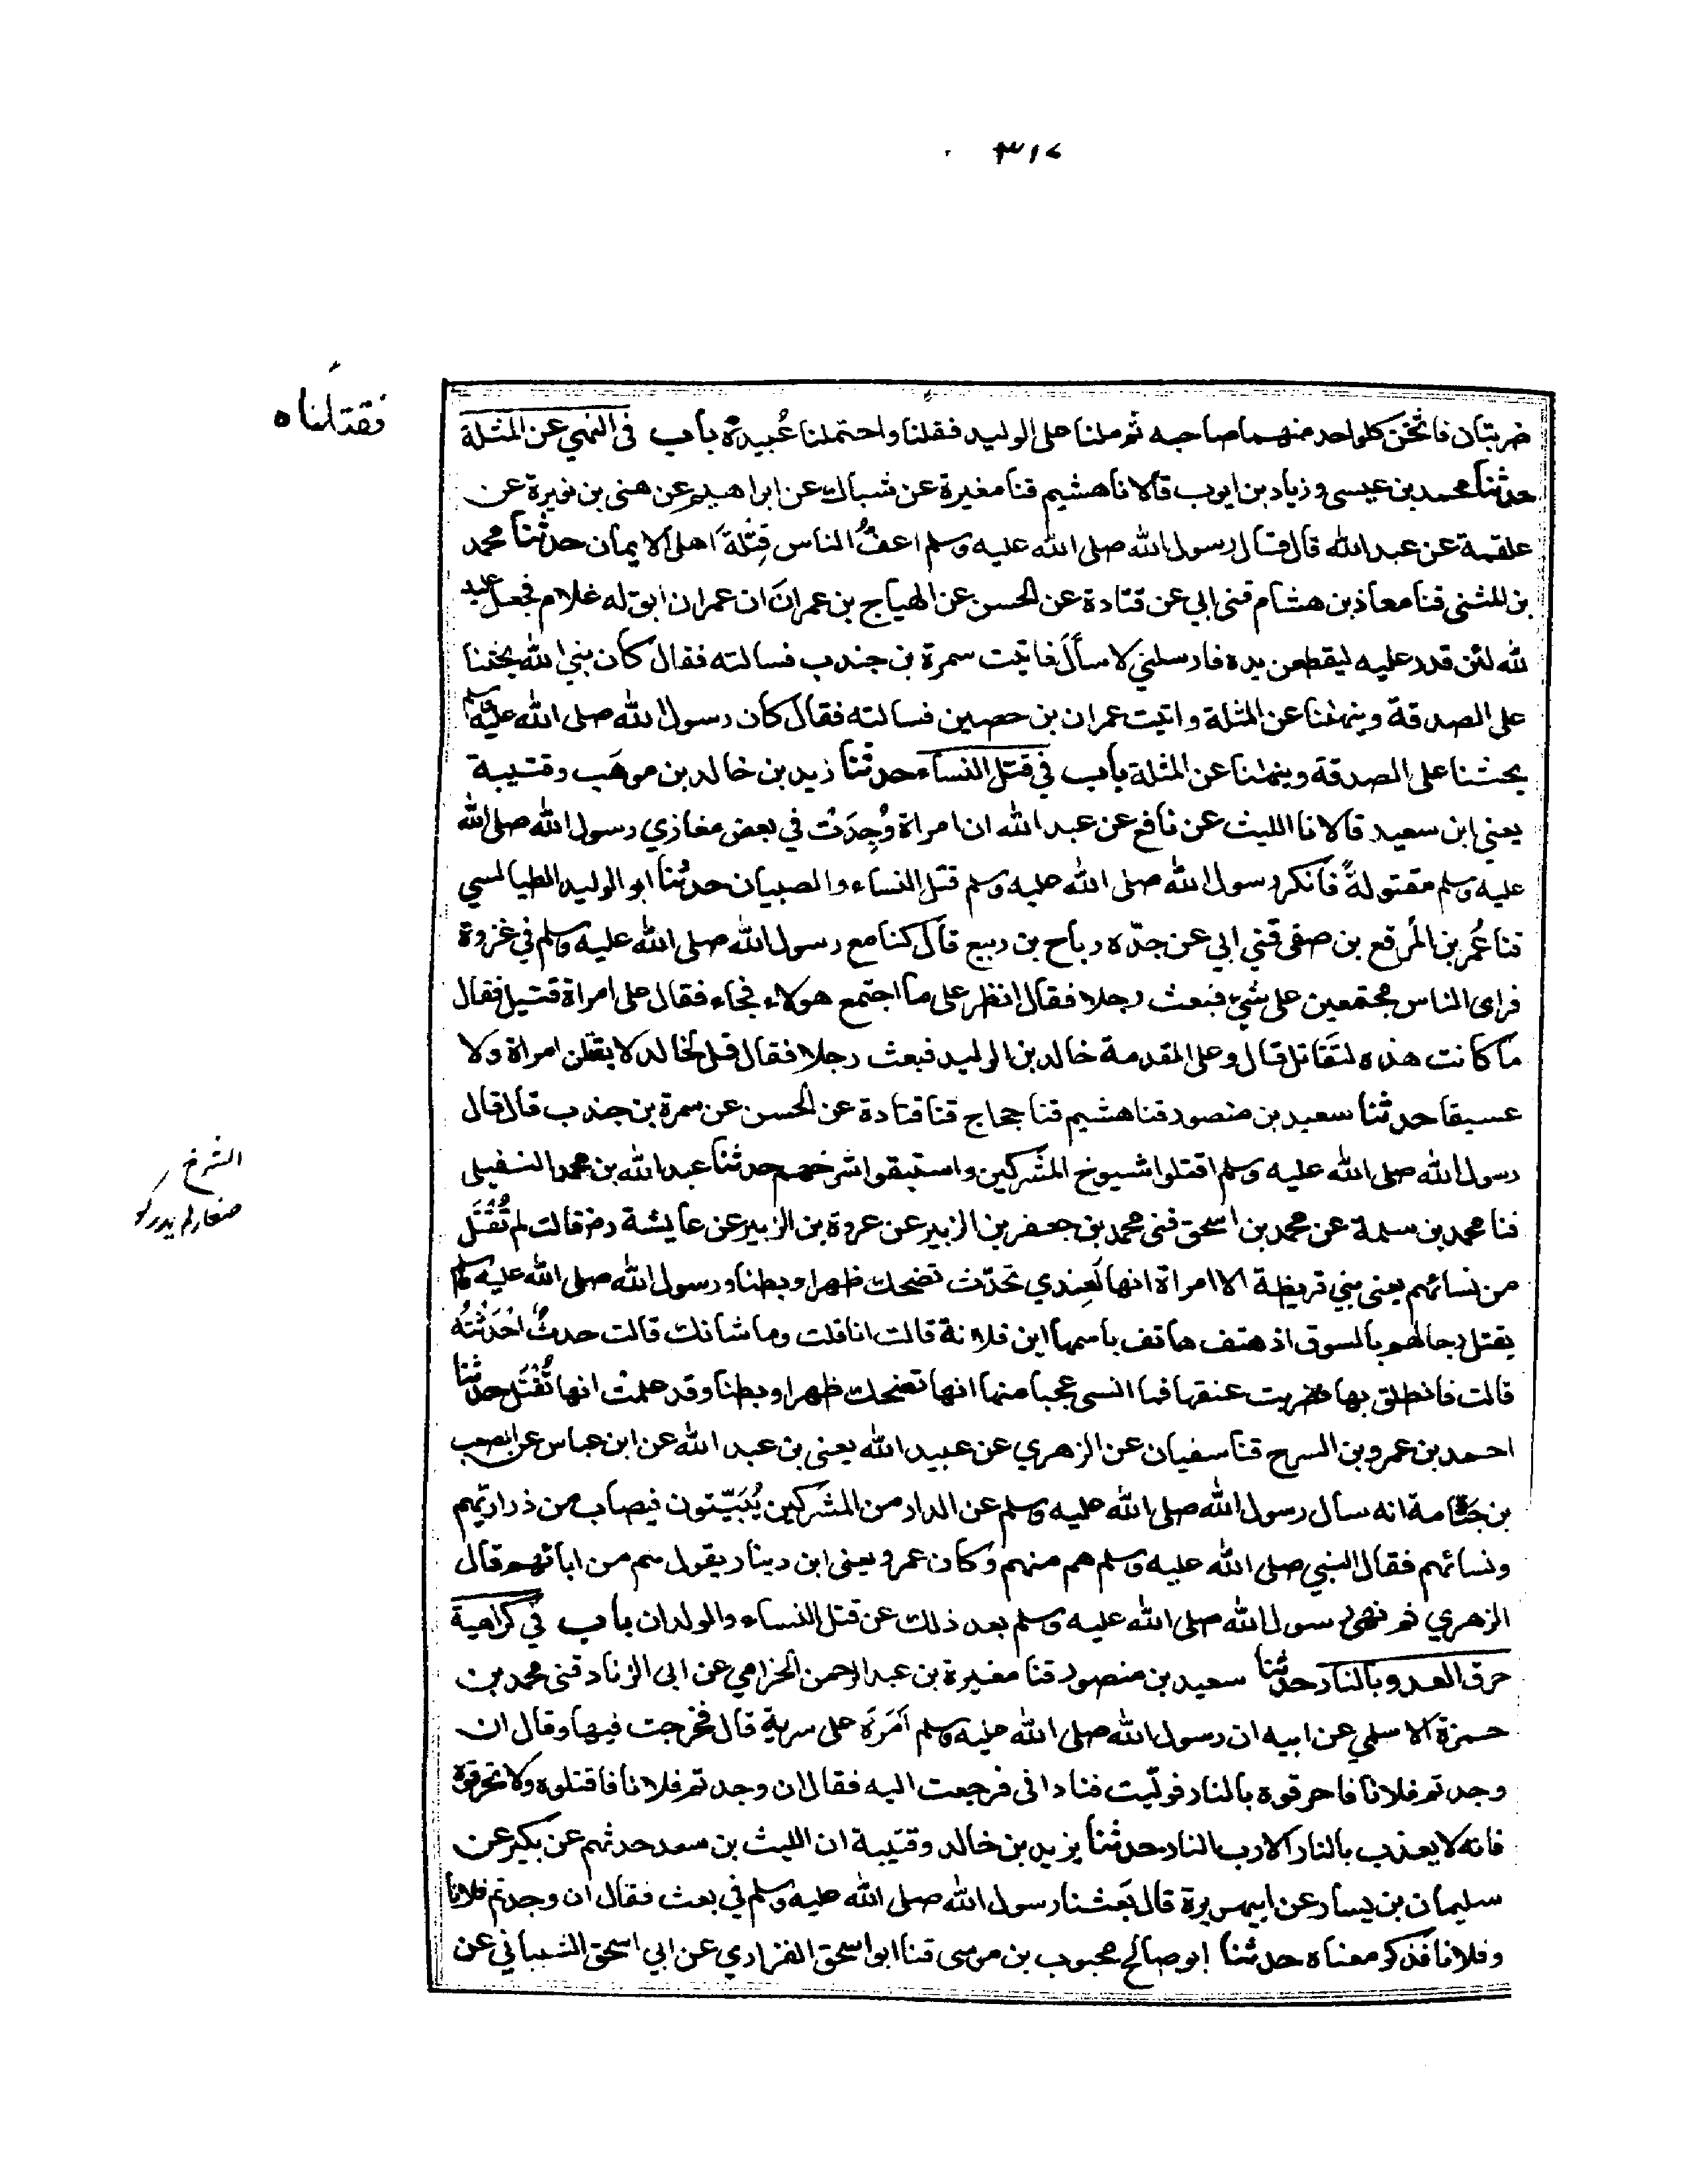 ٣١٧
ضربتان فاثخن كلواحد منهما صاحبه ثم ملنا على الوليد فقلنا واحتملنا عُبيدة باب في النهي عن المثلة
فقتلناه
حدثنا محمد بن عيسى وزياد بن ايوب قالا نا هشيم قنا مغيرة عن شباك عن ابراهيم عن هنى بن نويرة عن
علقمة عن عبد الله قال قال رسول الله صلى الله عليه وسلم اعفُّ الناس قِتْلَةً اهل الايمان حدثنا محمد
بن المثنى قنا معاذ بن هشام قنى ابي عن قتادة عن الحسن عن الهياج بن عمران ان عمران ابق له غلام فجعل عليه
لله لئن قدر عليه ليقطعن يده فارسلني لاسأل فاتيت سمرة بن جندب فسالته فقال كان نبي الله يحثنا
على الصدقة وينهانا عن المثلة واتيت عمران بن حصين فسالته فقال كان رسول الله صلى الله عليه وسلم
يحثنا على الصدقة وينهانا عن المثلة باب في قتل النساء حدثنا زيد بن خالد بن موهَب وقتيبة
يعني ابن سعيد قالا نا الليث عن نافع عن عبد الله ان امراة وُجِدَتْ في بعض مغازي رسول الله صلى الله
عليه وسلم مقتولةً فانكر رسول الله صلى الله عليه وسلم قتل النساء والصبيان حدثنا ابو الوليد الطيالسي
قنا عُمر بن المرقع بن صفى قني ابي عن جدّه رباح بن ربيع قال كنا مع رسول الله صلى الله عليه وسلم في غزوة
فراى الناس مجتمعين على شئ فبعث رجلا فقال انظر على ما اجتمع هولاء فجاء فقال على امراة قتيل فقال
ما كانت هذه لتقاتل قال وعلى المقدمة خالد بن الوليد فبعث رجلا فقال قل لخالد لا يقتلن امراة ولا
عسيفا حدثنا سعيد بن منصور قنا هشيم قنا حجاج قنا قتادة عن الحسن عن سمرة بن جندب قال قال
رسول الله صلى الله عليه وسلم اقتلوا شيوخ المشركين واستبقوا شرخهم حدثنا عبد الله بن محمد النفيلى
الشرخ
صغار لم يدركو
قنا محمد بن سلمة عن محمد بن اسحق قنى محمد بن جعفر بن الزبير عن عروة بن الزبير عن عايشة رض قالت لم تُقْتَل
من نسائهم يعنى بني قريظة الا امراة انها لَعِندي تحدّث تضحك ظهرا وبطنا ورسول الله صلى الله عليه وسلم
يقتل رجالهم بالسوق اذ هتف هاتف باسمها اين فلانة قالت انا قلت وما شانك قالت حدثٌ احْدَثْتُه
قالت فانطلق بها فضربت عنقها فما انسى عجبا منها انها تضحك ظهرا وبطنا وقد علمتْ انها تُقْتَل حدثنا
احمد بن عمرو بن السرح قنا سفيان عن الزهري عن عبيد الله يعنى بن عبد الله عن ابن عباس عن الصعب
بن جثّامة انه سال رسول الله صلى الله عليه وسلم عن الدار من المشركين يُبَيّتون فيصاب من ذراريّهم
ونسائهم فقال النبي صلى الله عليه وسلم هم منهم وكان عمرو يعنى ابن دينار يقول هم من ابائهم قال
الزهري ثم نهى رسول الله صلى الله عليه وسلم بعد ذلك عن قتل النساء والولدان باب في كراهية
حرق العدو بالنار حدثنا سعيد بن منصور قنا مغيرة بن عبد الرحمن الحزامي عن ابى الزناد قنى محمد بن
حمزة الاسلمي عن ابيه ان رسول الله صلى الله عليه وسلم اَمَرَه على سرية قال فخرجت فيها وقال ان
وجدتم فلانا فاحرقوه بالنار فولّيت فنادانى فرجعت اليه فقال ان وجدتم فلانا فاقتلوه ولا تحرقوه
فانه لا يعذب بالنار الا رب النار حدثنا يزيد بن خالد وقتيبة ان الليث بن سعد حدثهم عن بكير عن
سليمان بن يسار عن ابي هريرة قال بَعَثنا رسول الله صلى الله عليه وسلم في بعث فقال ان وجدتم فلانا
وفلانا فذكر معناه حدثنا ابو صالح محبوب بن موسى قنا ابو اسحق الفزاري عن ابي اسحق الشيباني عن